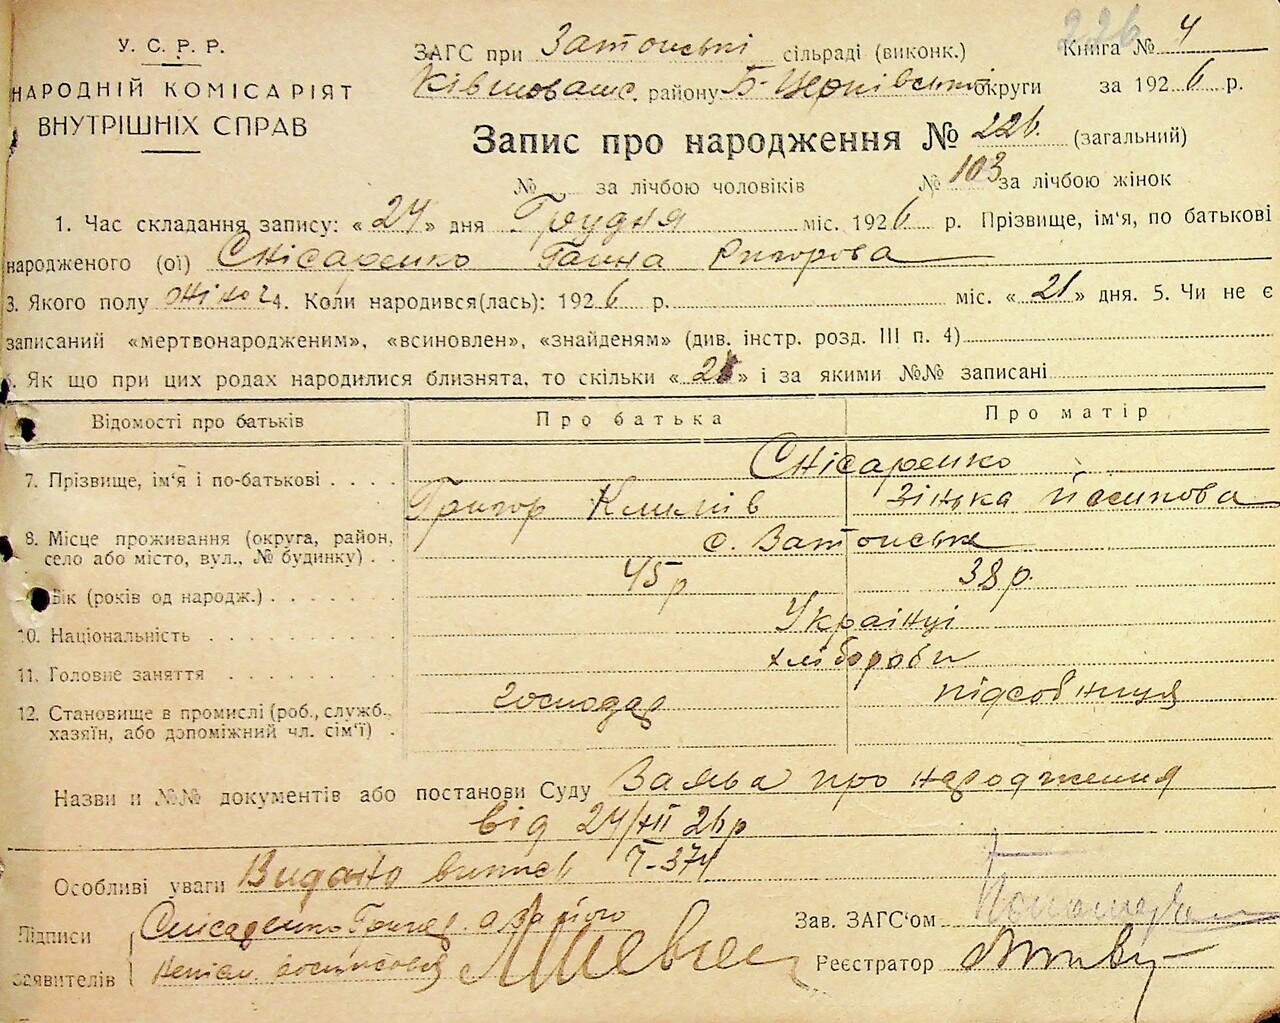 У. С. Р. Р.
НАРОДНІЙ КОМІСАРІЯТ
ВНУТРІШНІХ СПРАВ
226
ЗАГС при Затонські сільраді (виконк.) Книга № 4
району Б-Церківської округи за 1926 р.
Запис про народження № 226 (загальний)
№ за лічбою чоловіків № 103 за лічбою жінок
1. Час складання запису: « 24 » дня Грудня міс. 1926 р. Прізвище, ім'я, по батькові
народженого (ої) Снісаренко Ганна Григорова
3. Якого полу жіноч 4. Коли народився(лась): 1926 р. міс. « 21 » дня. 5. Чи не є
записаний «мертвонародженим», «всиновлен», «знайденям» (див. інстр. розд. III п. 4)
6. Як що при цих родах народилися близнята, то скільки « » і за якими №№ записані
Відомості про батьків Про батька Про матір
7. Прізвище, ім'я і по-батькові . . . . Снісаренко
Григор Климів Зінька Йосипова
8. Місце проживання (округа, район,
село або місто, вул., № будинку) . . с. Затонське
Вік (років од народж.) . . . . . . . 45 р 38 р.
10. Національність . . . . . . . . . . Українці
11. Головне заняття . . . . . . . . . хлібороби
12. Становище в промислі (роб., служб., господар підсобниця
хазяїн, або допоміжний чл. сім'ї) .
Назви и №№ документів або постанови Суду Заява про народження
від 24/XII 26 р
Особливі уваги Видано витяг
Підписи Снісаренко Григор. а за його
заявителів непісьм.
Зав. ЗАГС'ом
Реєстратор